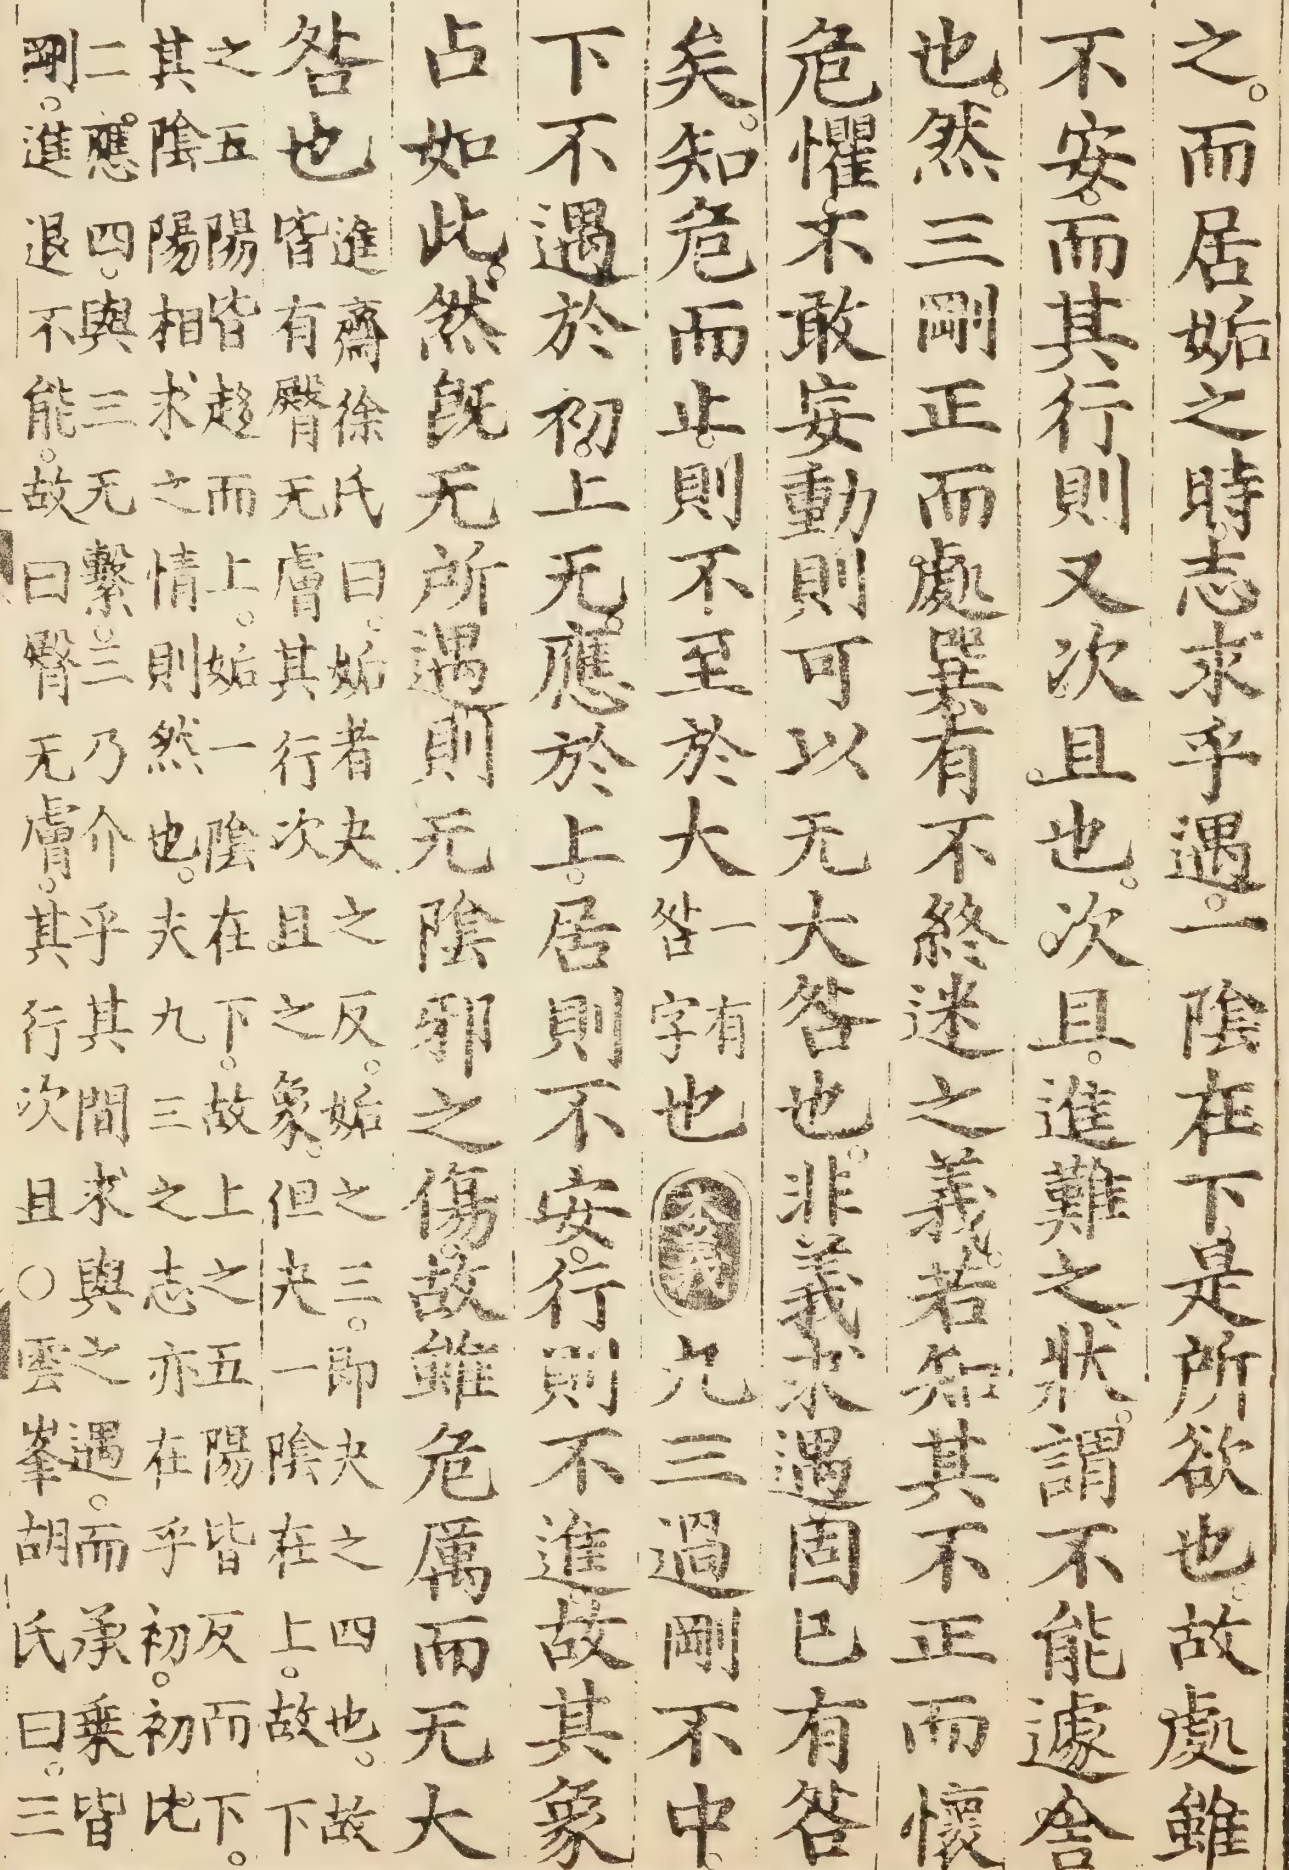 之。而居姤之時。志求乎遇。一陰在下。是所欲也。故處雖
不安。而其行則又次且也。次且。進難之狀。謂不能遽舍
也。然三剛正而處巽。有不終迷之義。若知其不正而懷
危懼。不敢妄動。則可以无大咎也。非義求遇。固已有咎
矣。知危而止。則不至於大一有咎字也 本義 九三過剛不中。
下不遇於初。上无應於上。居則不安。行則不進。故其象
占如此。然旣无所遇。則无陰邪之傷。故雖危厲而无大
咎也
進齋徐氏曰。姤者夬之反。姤之三。即夬之四也。故
皆有臀无膚其行次且之象。但夬一陰在上。故下
之五陽皆趨而上。姤一陰在下。故上之五陽皆反而下。
其陰陽相求之情則然也。夫九三之志亦在乎初。初比
二。應四。與三无繫。三乃介乎其間求與之遇。而承乘皆
剛。進退不能。故曰臀无膚。其行次且○雲峯胡氏曰。三